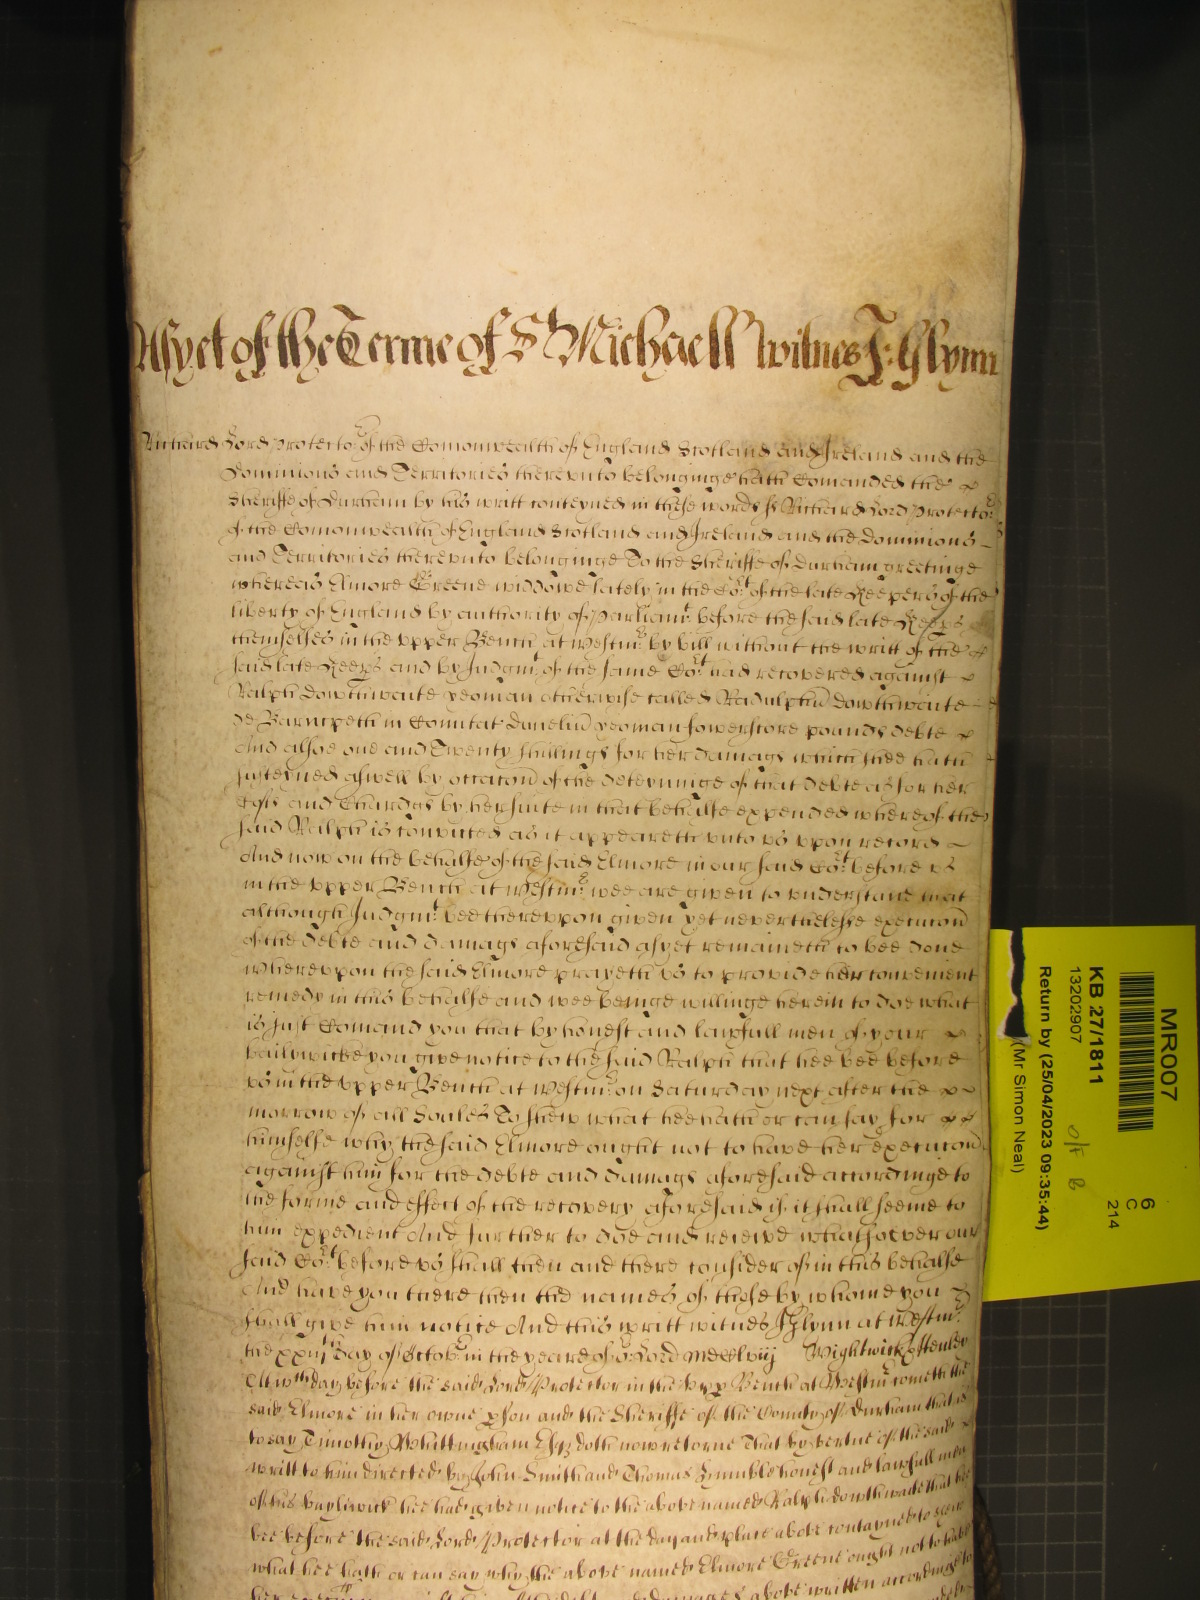 As yet of the Terme of St Michaell Witnes J: Glynn
Richard Lord Protector of the Comonwealth of England Scotland and Ireland and the
Dominions and Territories therevnto belonginge hath Comanded the
Sheriffe of Durham by his writt conteyned in these words ss Richard Lord Protector
of the Comonwealth of England Scotland and Ireland and the dominions
and Territories therevnto belonginge To the Sheriffe of Durham greetinge
whereas Elmore Greene widdowe lately in the Cot. of the late Keepers of the
liberty of England by authority of Parliamt. before the said late Keeps
themselves in the vpper Bench at Westmr. by bill without the writt of the
said late Keeps and by Judgmt. of the same Cot. had recovered against
Ralph Dowthwaite yeoman otherwise called Radulphu Dowthwaite
de Barnepeth in Comitat Dunelm yeoman fowerscore pounds debte
And alsoe one and Twenty shillings for her damags which shee hath
susteyned aswell by occacon of the deteyninge of that debte as for her
Costs and Chardgs by her suite in that behalfe expended whereof the
said Ralph is convicted as it appeareth vnto vs vppon record
And now on the behalfe of the said Elmore in our said Cot. before vs
in the vpper Bench at Westmr. wee are given to vnderstand that
although Judgmt. bee therevppon given yet nevertheless execucon
of the debte and damags aforesaid as yet remaineth to bee done
wherevppon the said Elmore prayeth vs to provide her convenient
remedy in this behalfe and wee beinge willinge herein to doe what
is just Comand you that by honest and lawfull men of your
bailywicke you give notice to the said Ralph that hee bee before
vs in the vpper Bench at Westmr. on Saturday next after the
morrow of all Soules To shew what hee hath or can say for
himselfe why the said Elmore ought not to have her execucon
against him for the debte and damags aforesaid accordinge to
the forme and effect of the recovery aforesaid if it shall seeme to
him expedient And further to doe and receive whatsoever our
said Cot. before vs shall then and there consider of in this behalfe
And have you there then the names of those by whome you
shall give him notice And this writt witnes J Glynn at Westmr.
the xxiijth day of Octobr. in the yeare of or. Lord MDCLviij Wightwick & Henley
At wch day before the said Lord Protector in the vpp Bench at Westmr cometh the
said Elmore in her owne pson and the Sheriffe of the County of Durham that is
to say Timothy Whittingham Esqr doth now retorne That by vertue of the said
writt to him directed by John Smith and Thomas Humble honest and lawfull men
of his bayliwick hee had given notice to the above named Ralph Dowthwaite that hee
bee before the said Lord Protector at the day and place above contayned to shew
what hee hath or can say why the above named Elmore Greene ought not to have
damages above written according to
MR007
KB 27/1811
13202907
Return by (25/04/2023 09:35:44)
(Mr Simon Neal)
6
C
214